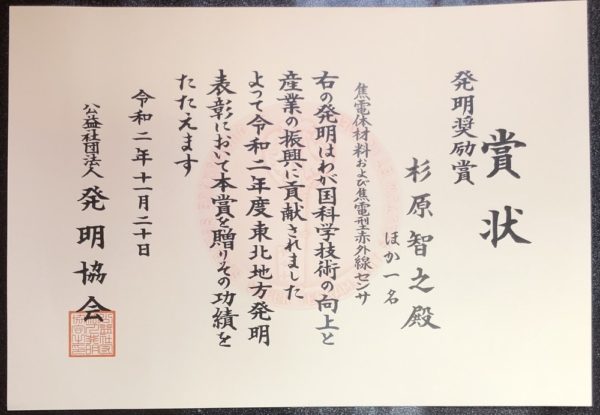 賞状
発明奨励賞
杉原智之殿
ほか一名
焦電体材料および焦電型赤外線センサ
右の発明はわが国科学技術の向上と
産業の振興に貢献されました
よって令和二年度東北地方発明
表彰において本賞を贈りその功績を
たたえます
令和二年十一月二十日
公益社団法人 発明協会